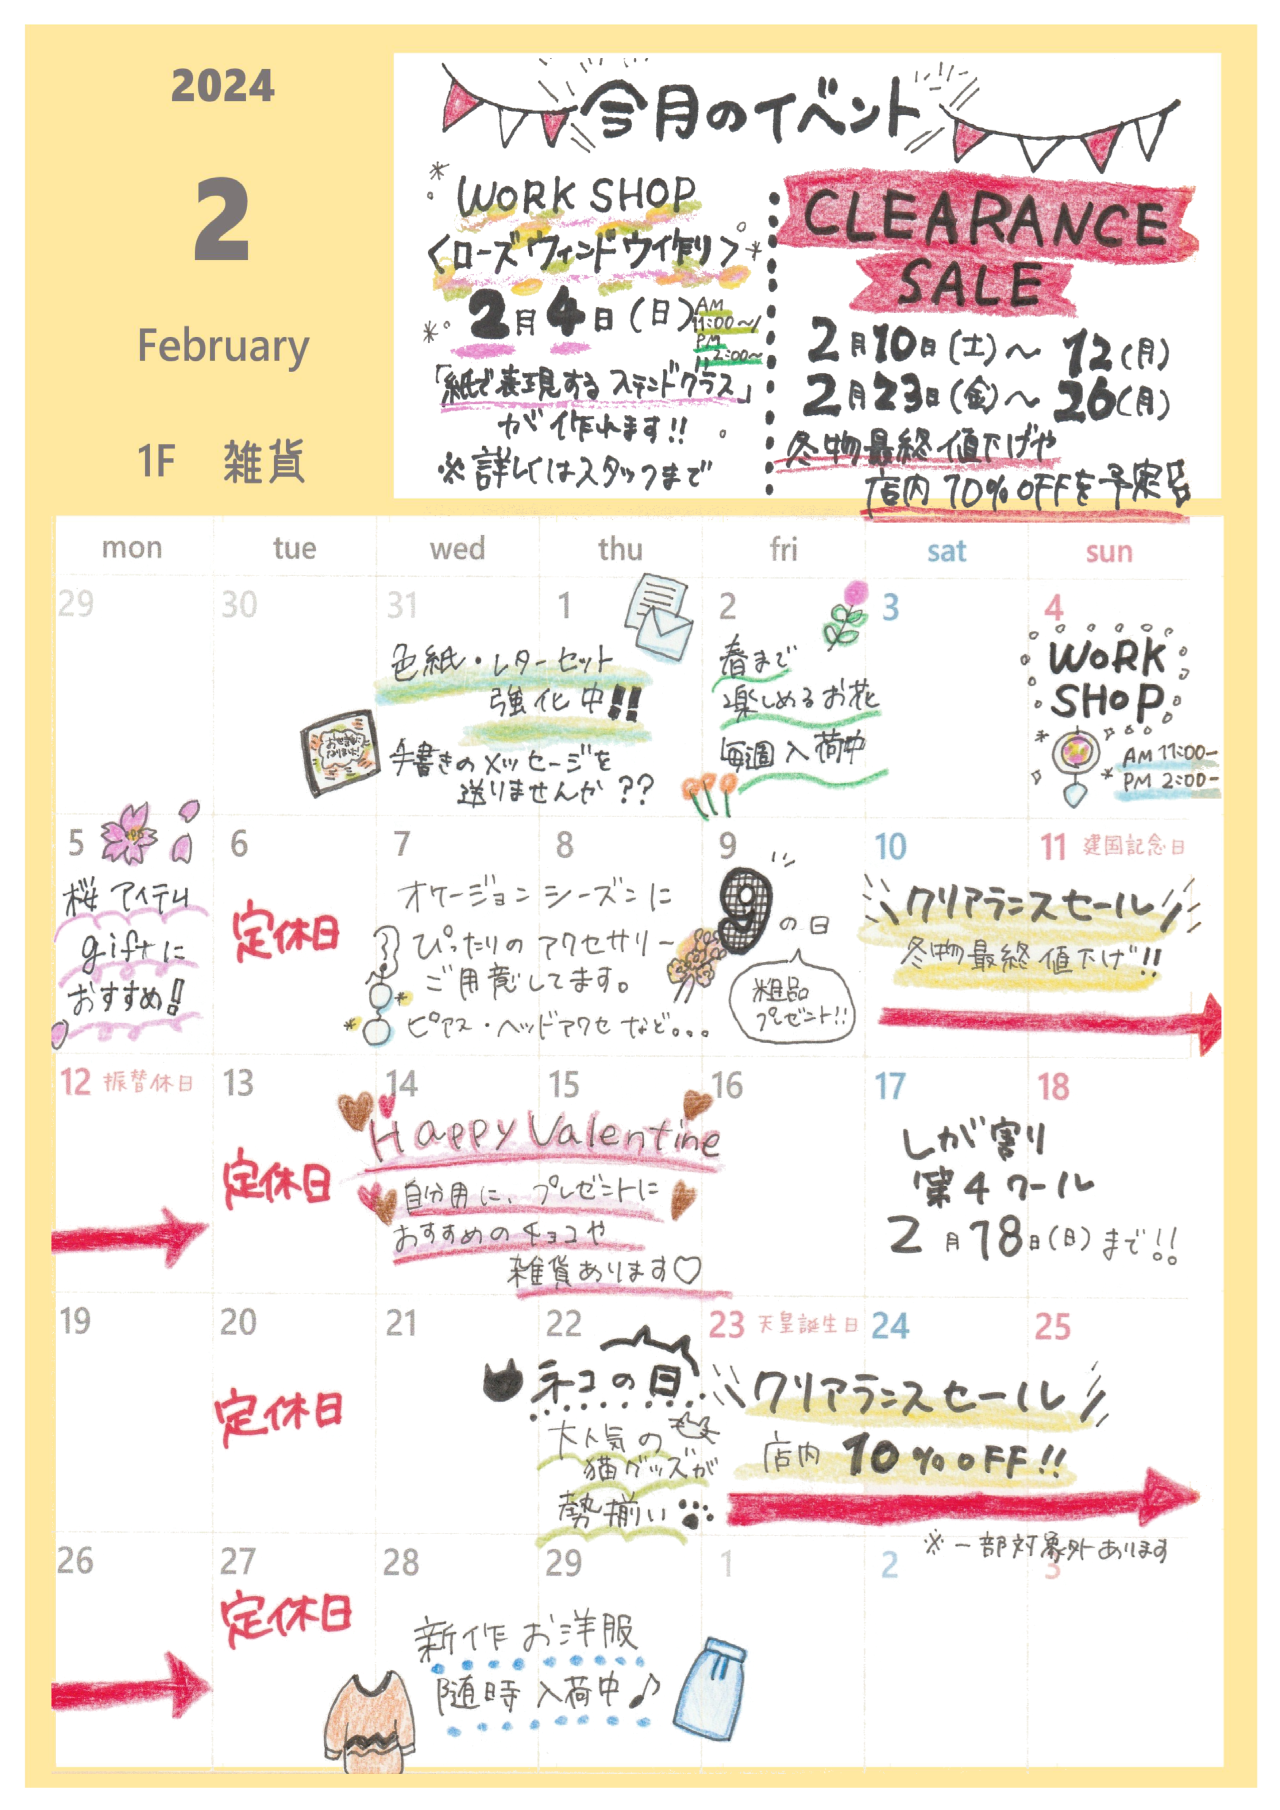 2024
2
February
1F 雑貨
今月のイベント
WORK SHOP
<ローズウィンドウ作り>
2月4日(日)
AM
11:00~
PM
2:00~
「紙で表現するステンドグラス」
が作れます!!
※詳しくはスタッフまで
CLEARANCE
SALE
2月10日(土)~12(月)
2月23日(金)~26(月)
冬物最終値下げや
店内10%OFFを予定
mon tue wed thu fri sat sun
29 30 31 1 2 3 4
色紙・レターセット
強化中!!
手書きのメッセージを
送りませんか??
春まで
楽しめるお花
毎週入荷中
WORK
SHOP
AM 11:00-
PM 2:00-
5 6 7 8 9 10 11 建国記念日
桜アイテム
giftに
おすすめ!
定休日
オケージョンシーズンに
ぴったりのアクセサリー
ご用意してます。
ピアス・ヘッドアクセなど...
9の日
粗品
プレゼント!!
クリアランスセール
冬物最終値下げ!!
12 振替休日 13 14 15 16 17 18
定休日
Happy Valentine
自分用に、プレゼントに
おすすめのチョコや
雑貨あります♡
しが割り
第4クール
2月18日(日)まで!!
19 20 21 22 23 天皇誕生日 24 25
定休日
ネコの日
大人気の
猫グッズが
勢揃い
クリアランスセール
店内10%OFF!!
※一部対象外あります
26 27 28 29 1 2 3
定休日
新作お洋服
随時入荷中♪